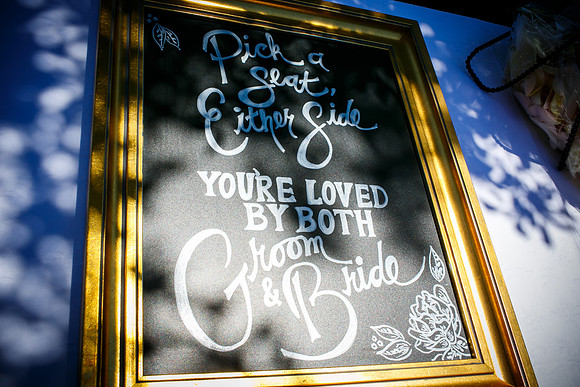 Pick a
Seat,
Either Side
YOU'RE LOVED
BY BOTH
Groom
& Bride